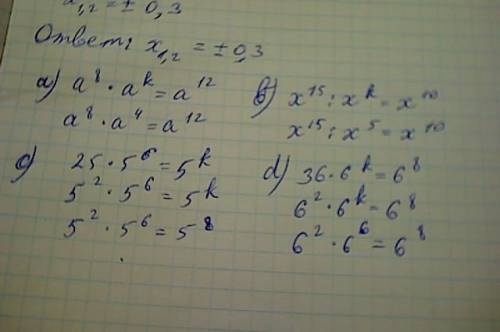 x₁,₂ = ± 0,3
Ответ: x₁,₂ = ±0,3
a) a⁸ · aᵏ = a¹²
a⁸ · a⁴ = a¹²
b) x¹⁵ : xᵏ = x¹⁰
x¹⁵ : x⁵ = x¹⁰
c) 25 · 5⁶ = 5ᵏ
5² · 5⁶ = 5ᵏ
5² · 5⁶ = 5⁸
d) 36 · 6ᵏ = 6⁸
6² · 6ᵏ = 6⁸
6² · 6⁶ = 6⁸